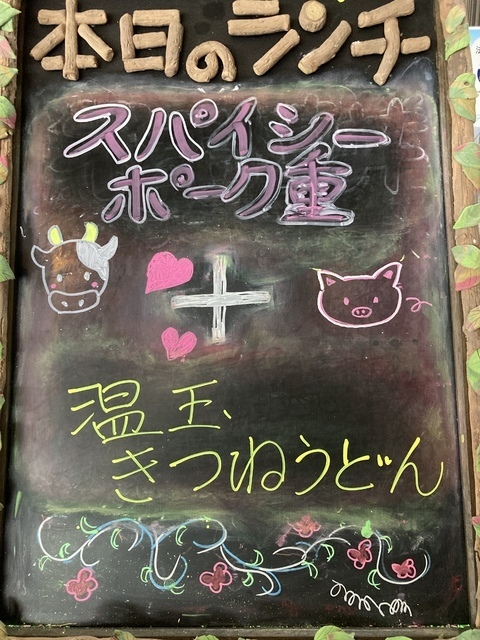 本日のランチ
スパイシー
ポーク重
+
温玉、
きつねうどん